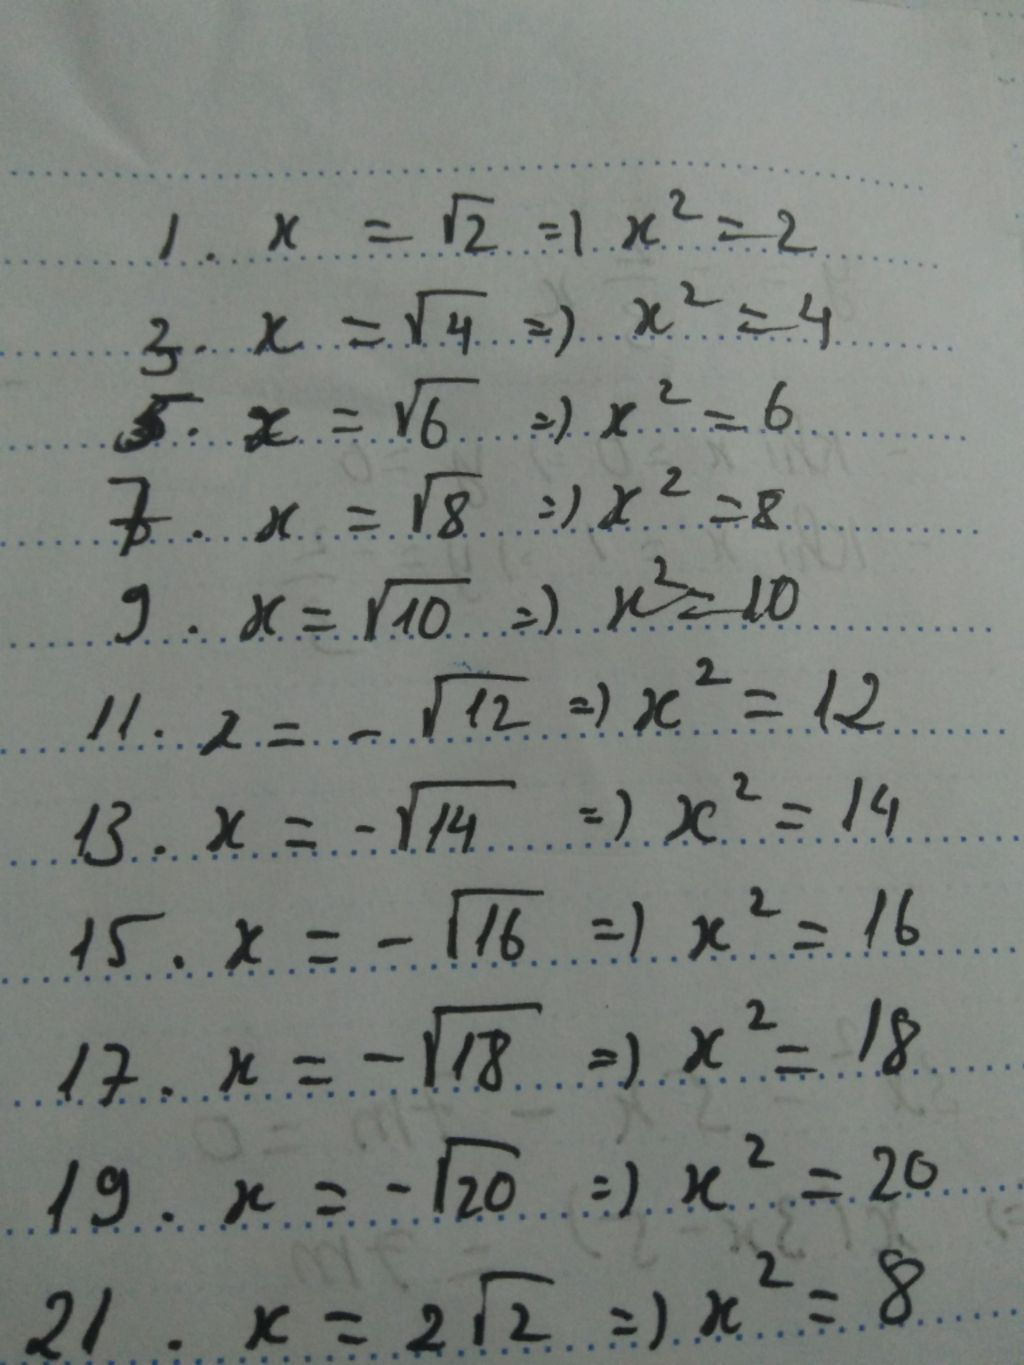 1. x = √2 => x² = 2
3. x = √4 => x² = 4
5. x = √6 => x² = 6
7. x = √8 => x² = 8
9. x = √10 => x² = 10
11. x = -√12 => x² = 12
13. x = -√14 => x² = 14
15. x = -√16 => x² = 16
17. x = -√18 => x² = 18
19. x = -√20 => x² = 20
21. x = 2√2 => x² = 8